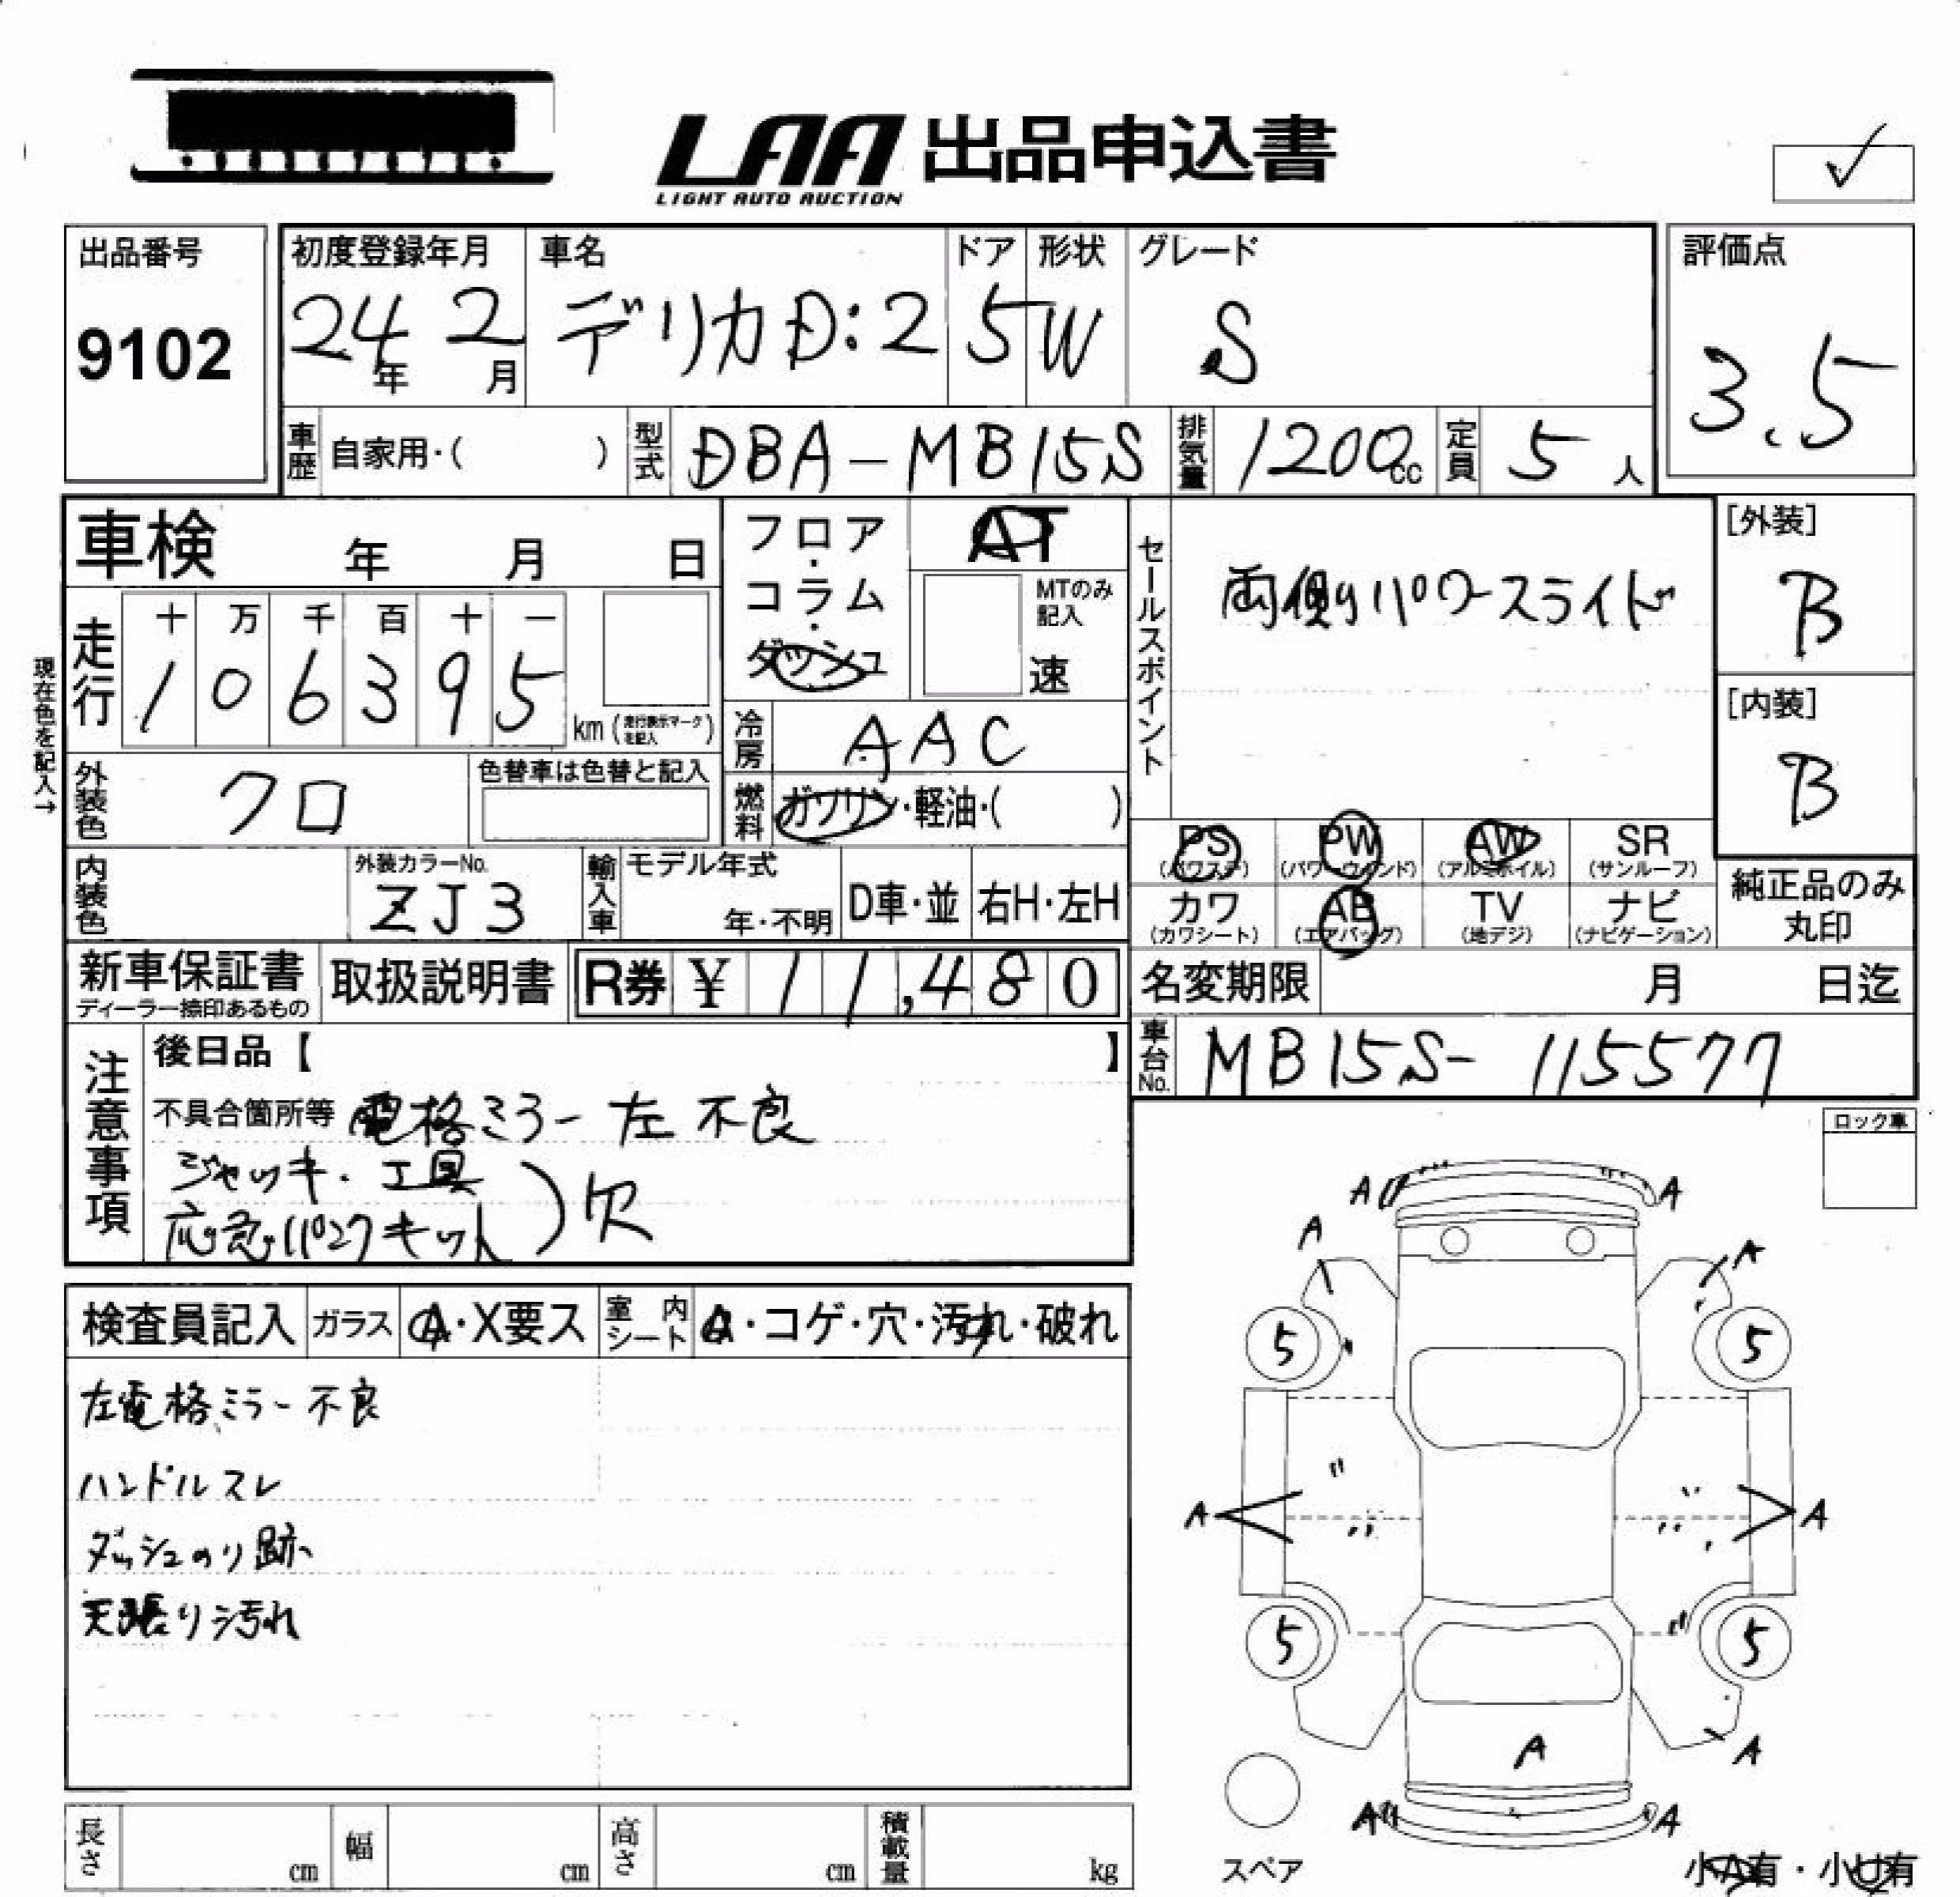 LAA 出品申込書
LIGHT AUTO AUCTION
✓
出品番号
9102
初度登録年月
24年 2月
車名
デリカD:2
ドア
5
形状
W
グレード
S
評価点
3.5
車歴 自家用・( )
型式 DBA-MB15S
排気量 1200cc
定員 5人
車検 年 月 日
フロア・コラム・ダッシュ
AT
MTのみ記入
速
セールスポイント
両側パワースライド
[外装]
B
[内装]
B
現在色を記入→
走行
十 万 千 百 十 一
1 0 6 3 9 5
km (走行表示マークを記入)
冷房 AAC
外装色 クロ
色替車は色替と記入
燃料 ガソリン・軽油・( )
PS (パワステ)
PW (パワーウィンド)
AW (アルミホイル)
SR (サンルーフ)
カワ (カワシート)
AB (エアバッグ)
TV (地デジ)
ナビ (ナビゲーション)
純正品のみ丸印
内装色
外装カラーNo.
ZJ3
輸入車
モデル年式
年・不明
D車・並
右H・左H
新車保証書
ディーラー捺印あるもの
取扱説明書
R券 ¥ 11,480
名変期限 月 日迄
車台No. MB15S-115577
注意事項
後日品【 】
不具合箇所等 電格ミラー左不良
ジャッキ・工具
応急パンクキット)欠
ロック車
検査員記入
ガラス A・X要ス
室内シート A・コゲ・穴・汚れ・破れ
左電格ミラー不良
ハンドルスレ
ダッシュのり跡
天張り汚れ
A A
A A
5 5
A A
5 5
A A
A A
スペア
小A有・小U有
長さ cm
幅 cm
高さ cm
積載量 kg